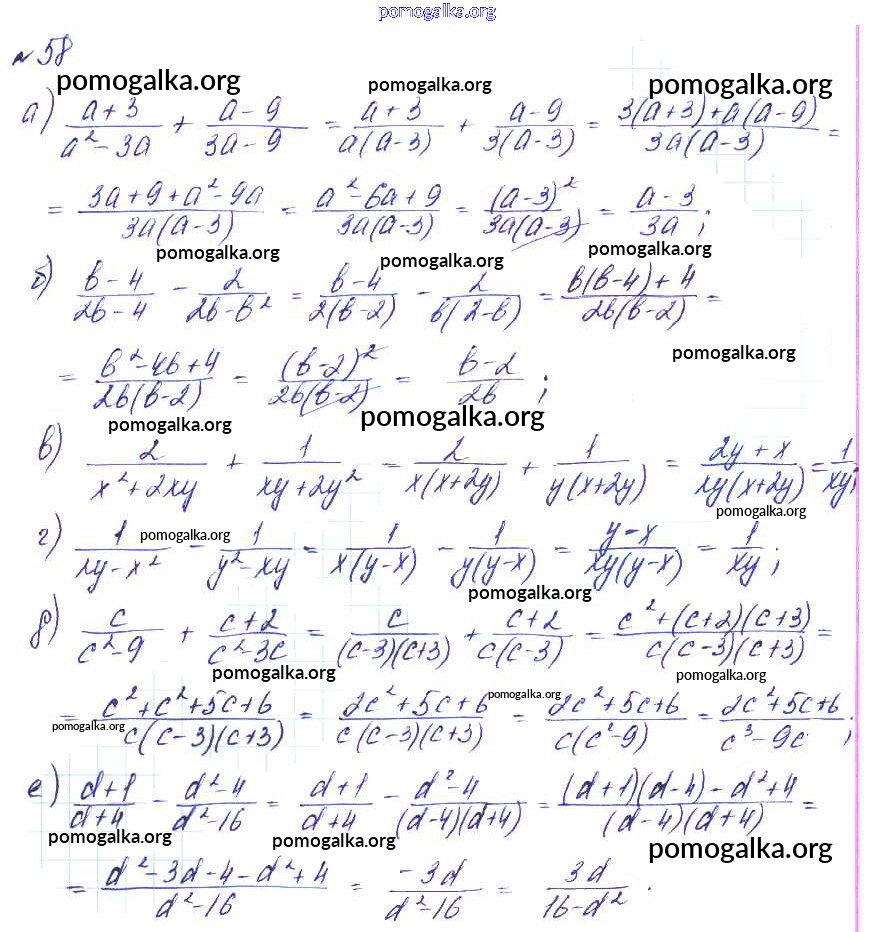 pomogalka.org
№ 58
pomogalka.org pomogalka.org pomogalka.org
а) (a+3)/(a²-3a) + (a-9)/(3a-9) = (a+3)/(a(a-3)) + (a-9)/(3(a-3)) = (3(a+3)+a(a-9))/(3a(a-3)) =
= (3a+9+a²-9a)/(3a(a-3)) = (a²-6a+9)/(3a(a-3)) = (a-3)²/(3a(a-3)) = (a-3)/(3a);
pomogalka.org pomogalka.org pomogalka.org
б) (b-4)/(2b-4) - 2/(2b-b²) = (b-4)/(2(b-2)) - 2/(b(2-b)) = (b(b-4)+4)/(2b(b-2)) =
pomogalka.org
= (b²-4b+4)/(2b(b-2)) = (b-2)²/(2b(b-2)) = (b-2)/(2b);
pomogalka.org pomogalka.org
в) 2/(x²+2xy) + 1/(xy+2y²) = 2/(x(x+2y)) + 1/(y(x+2y)) = (2y+x)/(xy(x+2y)) = 1/(xy);
pomogalka.org
pomogalka.org
г) 1/(xy-x²) - 1/(y²-xy) = 1/(x(y-x)) - 1/(y(y-x)) = (y-x)/(xy(y-x)) = 1/(xy);
pomogalka.org
д) c/(c²-9) + (c+2)/(c²-3c) = c/((c-3)(c+3)) + (c+2)/(c(c-3)) = (c²+(c+2)(c+3))/(c(c-3)(c+3)) =
pomogalka.org pomogalka.org
pomogalka.org pomogalka.org
= (c²+c²+5c+6)/(c(c-3)(c+3)) = (2c²+5c+6)/(c(c-3)(c+3)) = (2c²+5c+6)/(c(c²-9)) = (2c²+5c+6)/(c³-9c);
е) (d+1)/(d+4) - (d²-4)/(d²-16) = (d+1)/(d+4) - (d²-4)/((d-4)(d+4)) = ((d+1)(d-4)-d²+4)/((d-4)(d+4)) =
pomogalka.org pomogalka.org pomogalka.org
= (d²-3d-4-d²+4)/(d²-16) = (-3d)/(d²-16) = 3d/(16-d²).